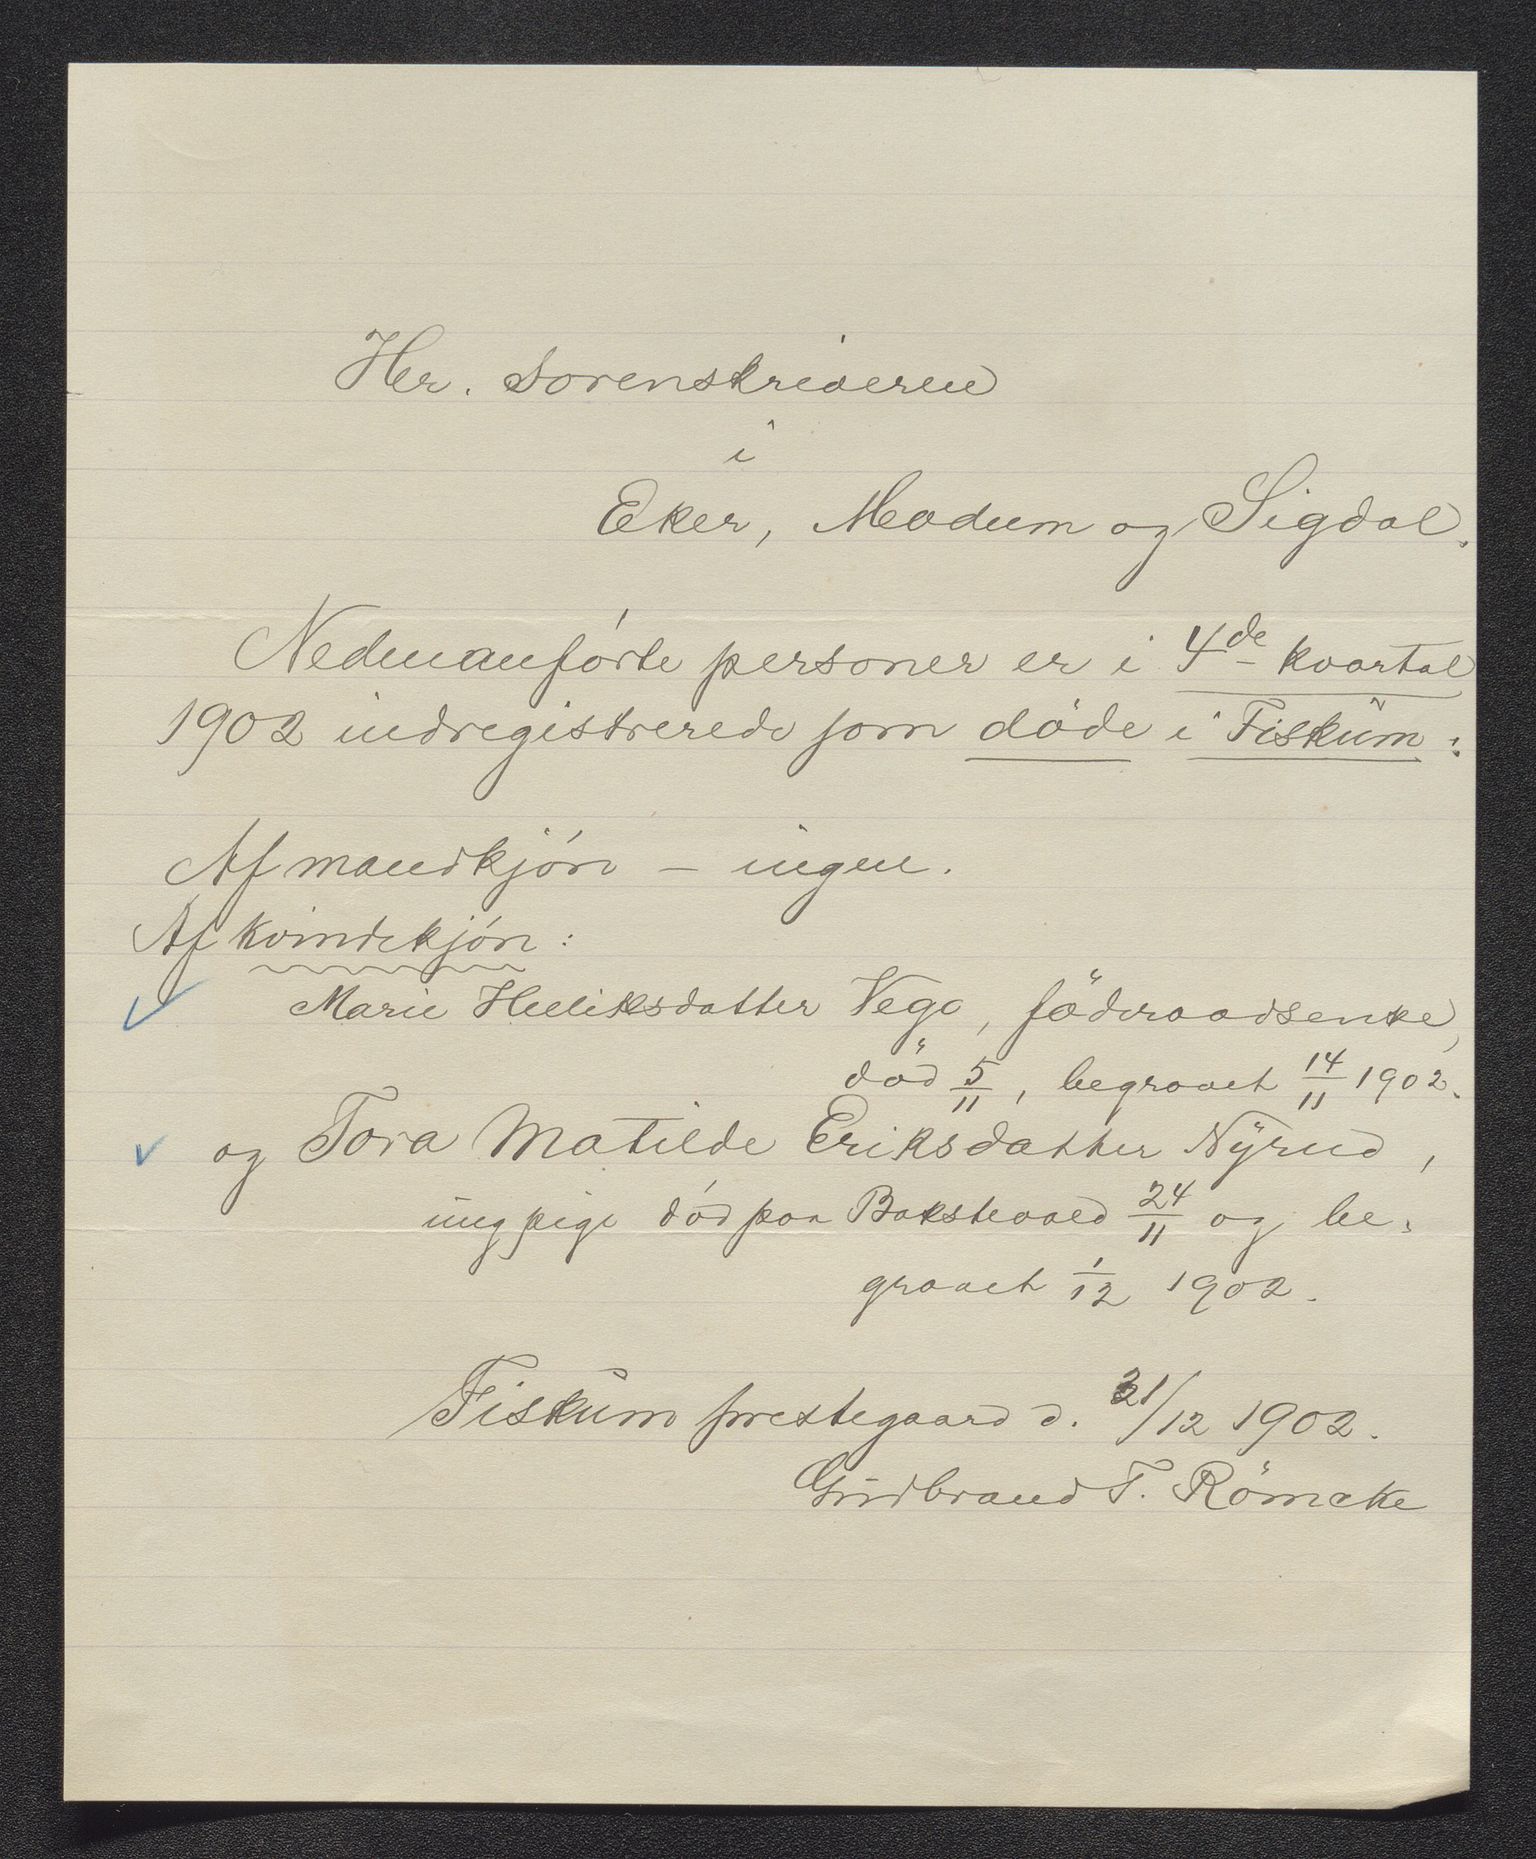 Her. Sorenskriveren
i
Eker, Modum og Sigdal.
Nedenanförte personer er i 4de kvartal
1902 indregistrerede som döde i Fiskum:
Af mandkjön – ingen.
Af kvindekjön:
Marie Helliksdatter Vego, föderaadsenke,
död 5/11, begravet 14/11 1902.
og Tora Matilde Eriksdatter Nyrud,
ung pige död paa Bakstevald 24/11 og be-
gravet 1/12 1902.
Fiskum prestegaard d. 31/12 1902.
Gudbrand T. Römcke